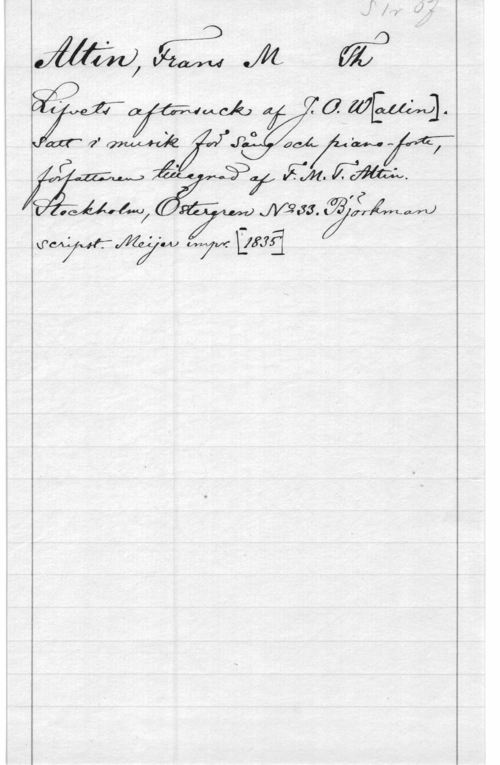 Altin, Frans M Th
Lifvets aftonsuck af J. O. W[allin].
Satt i musik för sång och piano-forte,
författaren tillegnad af F. M. T. Altin.
Stockholm, Östergren № 33. Björkman
scripst. Meijer impr. [1835]